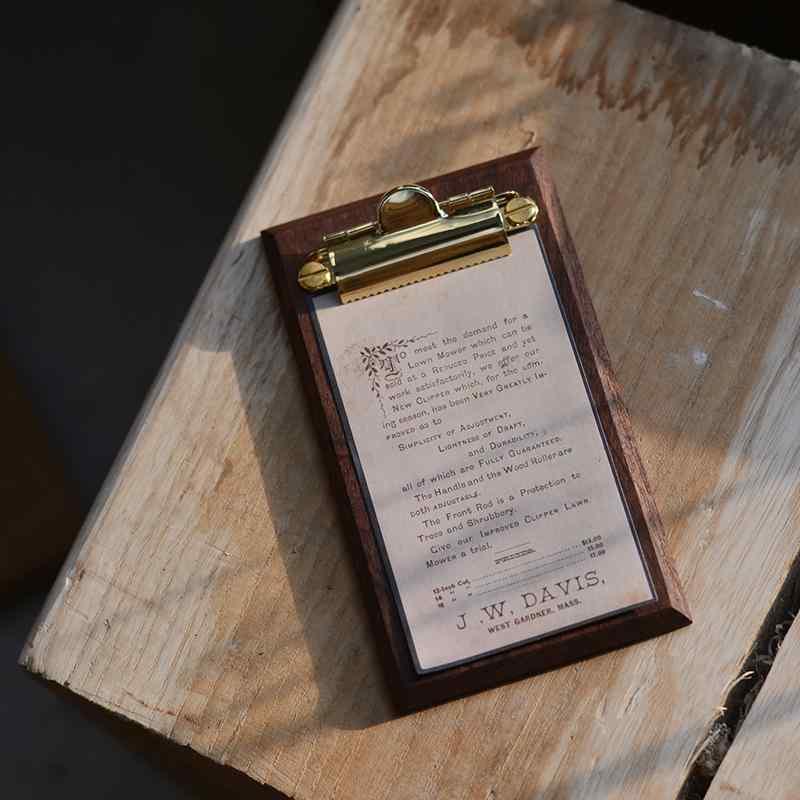 To meet the demand for a
Lawn Mower which can be
sold at a Reduced Price and yet
work satisfactorily, we offer our
New Clipper which, for the com-
ing season, has been Very Greatly Im-
proved as to
Simplicity of Adjustment,
Lightness of Draft,
and Durability,
all of which are Fully Guaranteed.
The Handle and the Wood Roller are
both adjustable.
The Front Rod is a Protection to
Trees and Shrubbery.
Give our Improved Clipper Lawn
Mower a trial.
12-Inch Cut, $13.00
14 " " 15.00
16 " " 17.00
J.W. DAVIS,
WEST GARDNER, MASS.